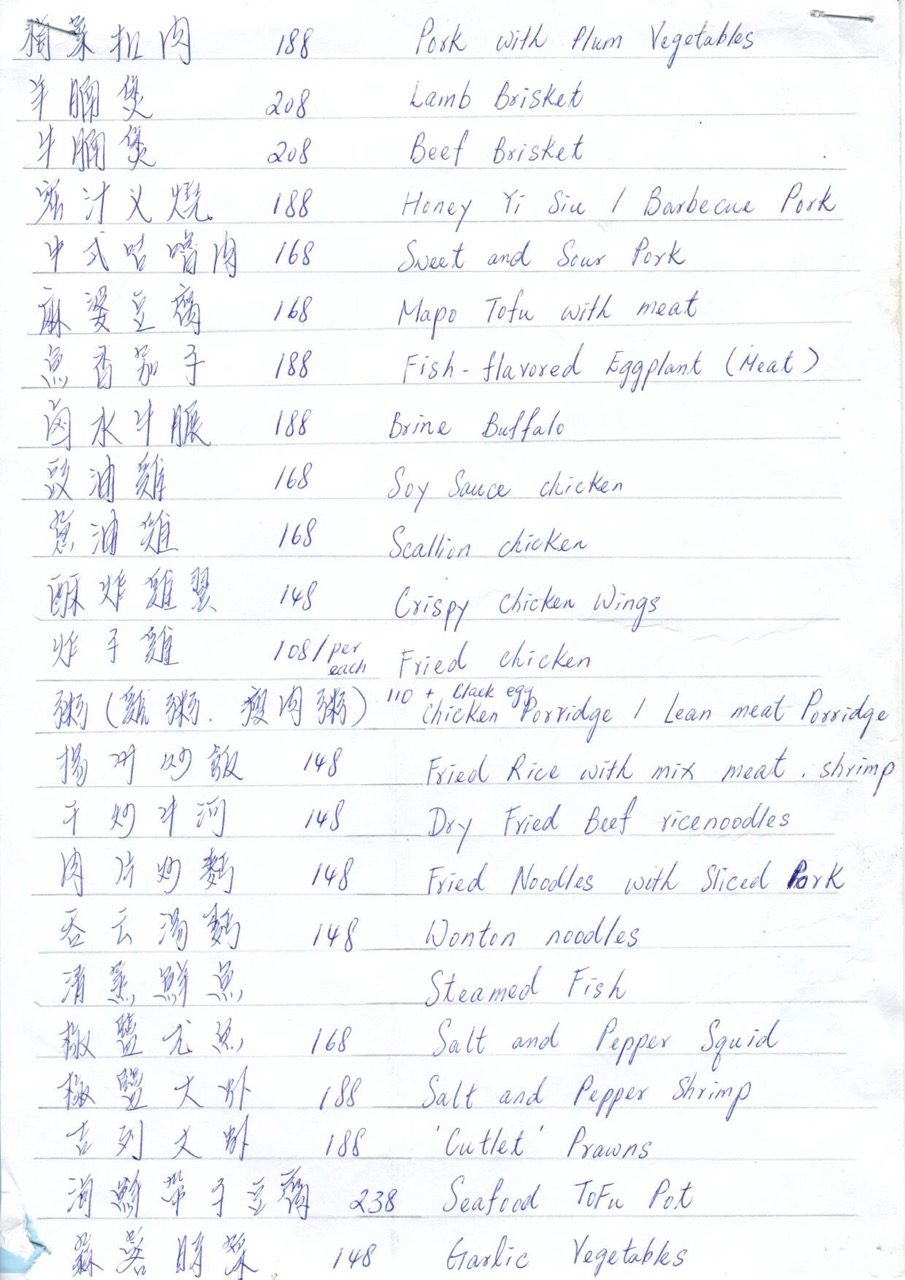 梅菜扣肉 188 Pork with Plum Vegetables
羊腩煲 208 Lamb Brisket
牛腩煲 208 Beef Brisket
蜜汁叉燒 188 Honey Yi Siu / Barbecue Pork
中式咕嚕肉 168 Sweet and Sour Pork
麻婆豆腐 168 Mapo Tofu with meat
魚香茄子 188 Fish-flavored Eggplant (Meat)
卤水牛腱 188 Brine Buffalo
豉油雞 168 Soy Sauce chicken
葱油雞 168 Scallion chicken
酥炸雞翼 148 Crispy Chicken Wings
炸子雞 108/per each Fried chicken
粥(雞粥.瘦肉粥) 110 + black egg Chicken Porridge / Lean meat Porridge
揚州炒飯 148 Fried Rice with mix meat . shrimp
干炒牛河 148 Dry Fried Beef ricenoodles
肉片炒麵 148 Fried Noodles with Sliced Pork
吞云湯麵 148 Wonton noodles
清蒸鮮魚 Steamed Fish
椒鹽尤魚 168 Salt and Pepper Squid
椒鹽大虾 188 Salt and Pepper Shrimp
吉列大虾 188 'Cutlet' Prawns
海鮮帶子豆腐 238 Seafood ToFu Pot
蒜蓉時菜 148 Garlic Vegetables